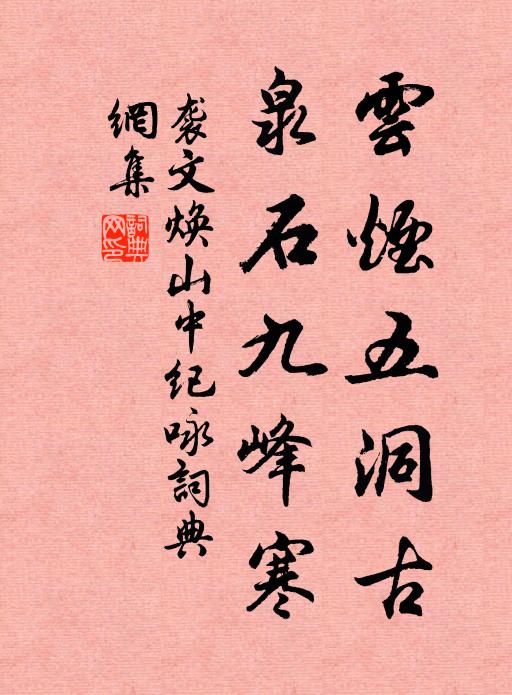 雲煙五洞古
泉石九峰寒
袭文焕山中纪咏詞典
網集
詞典网印